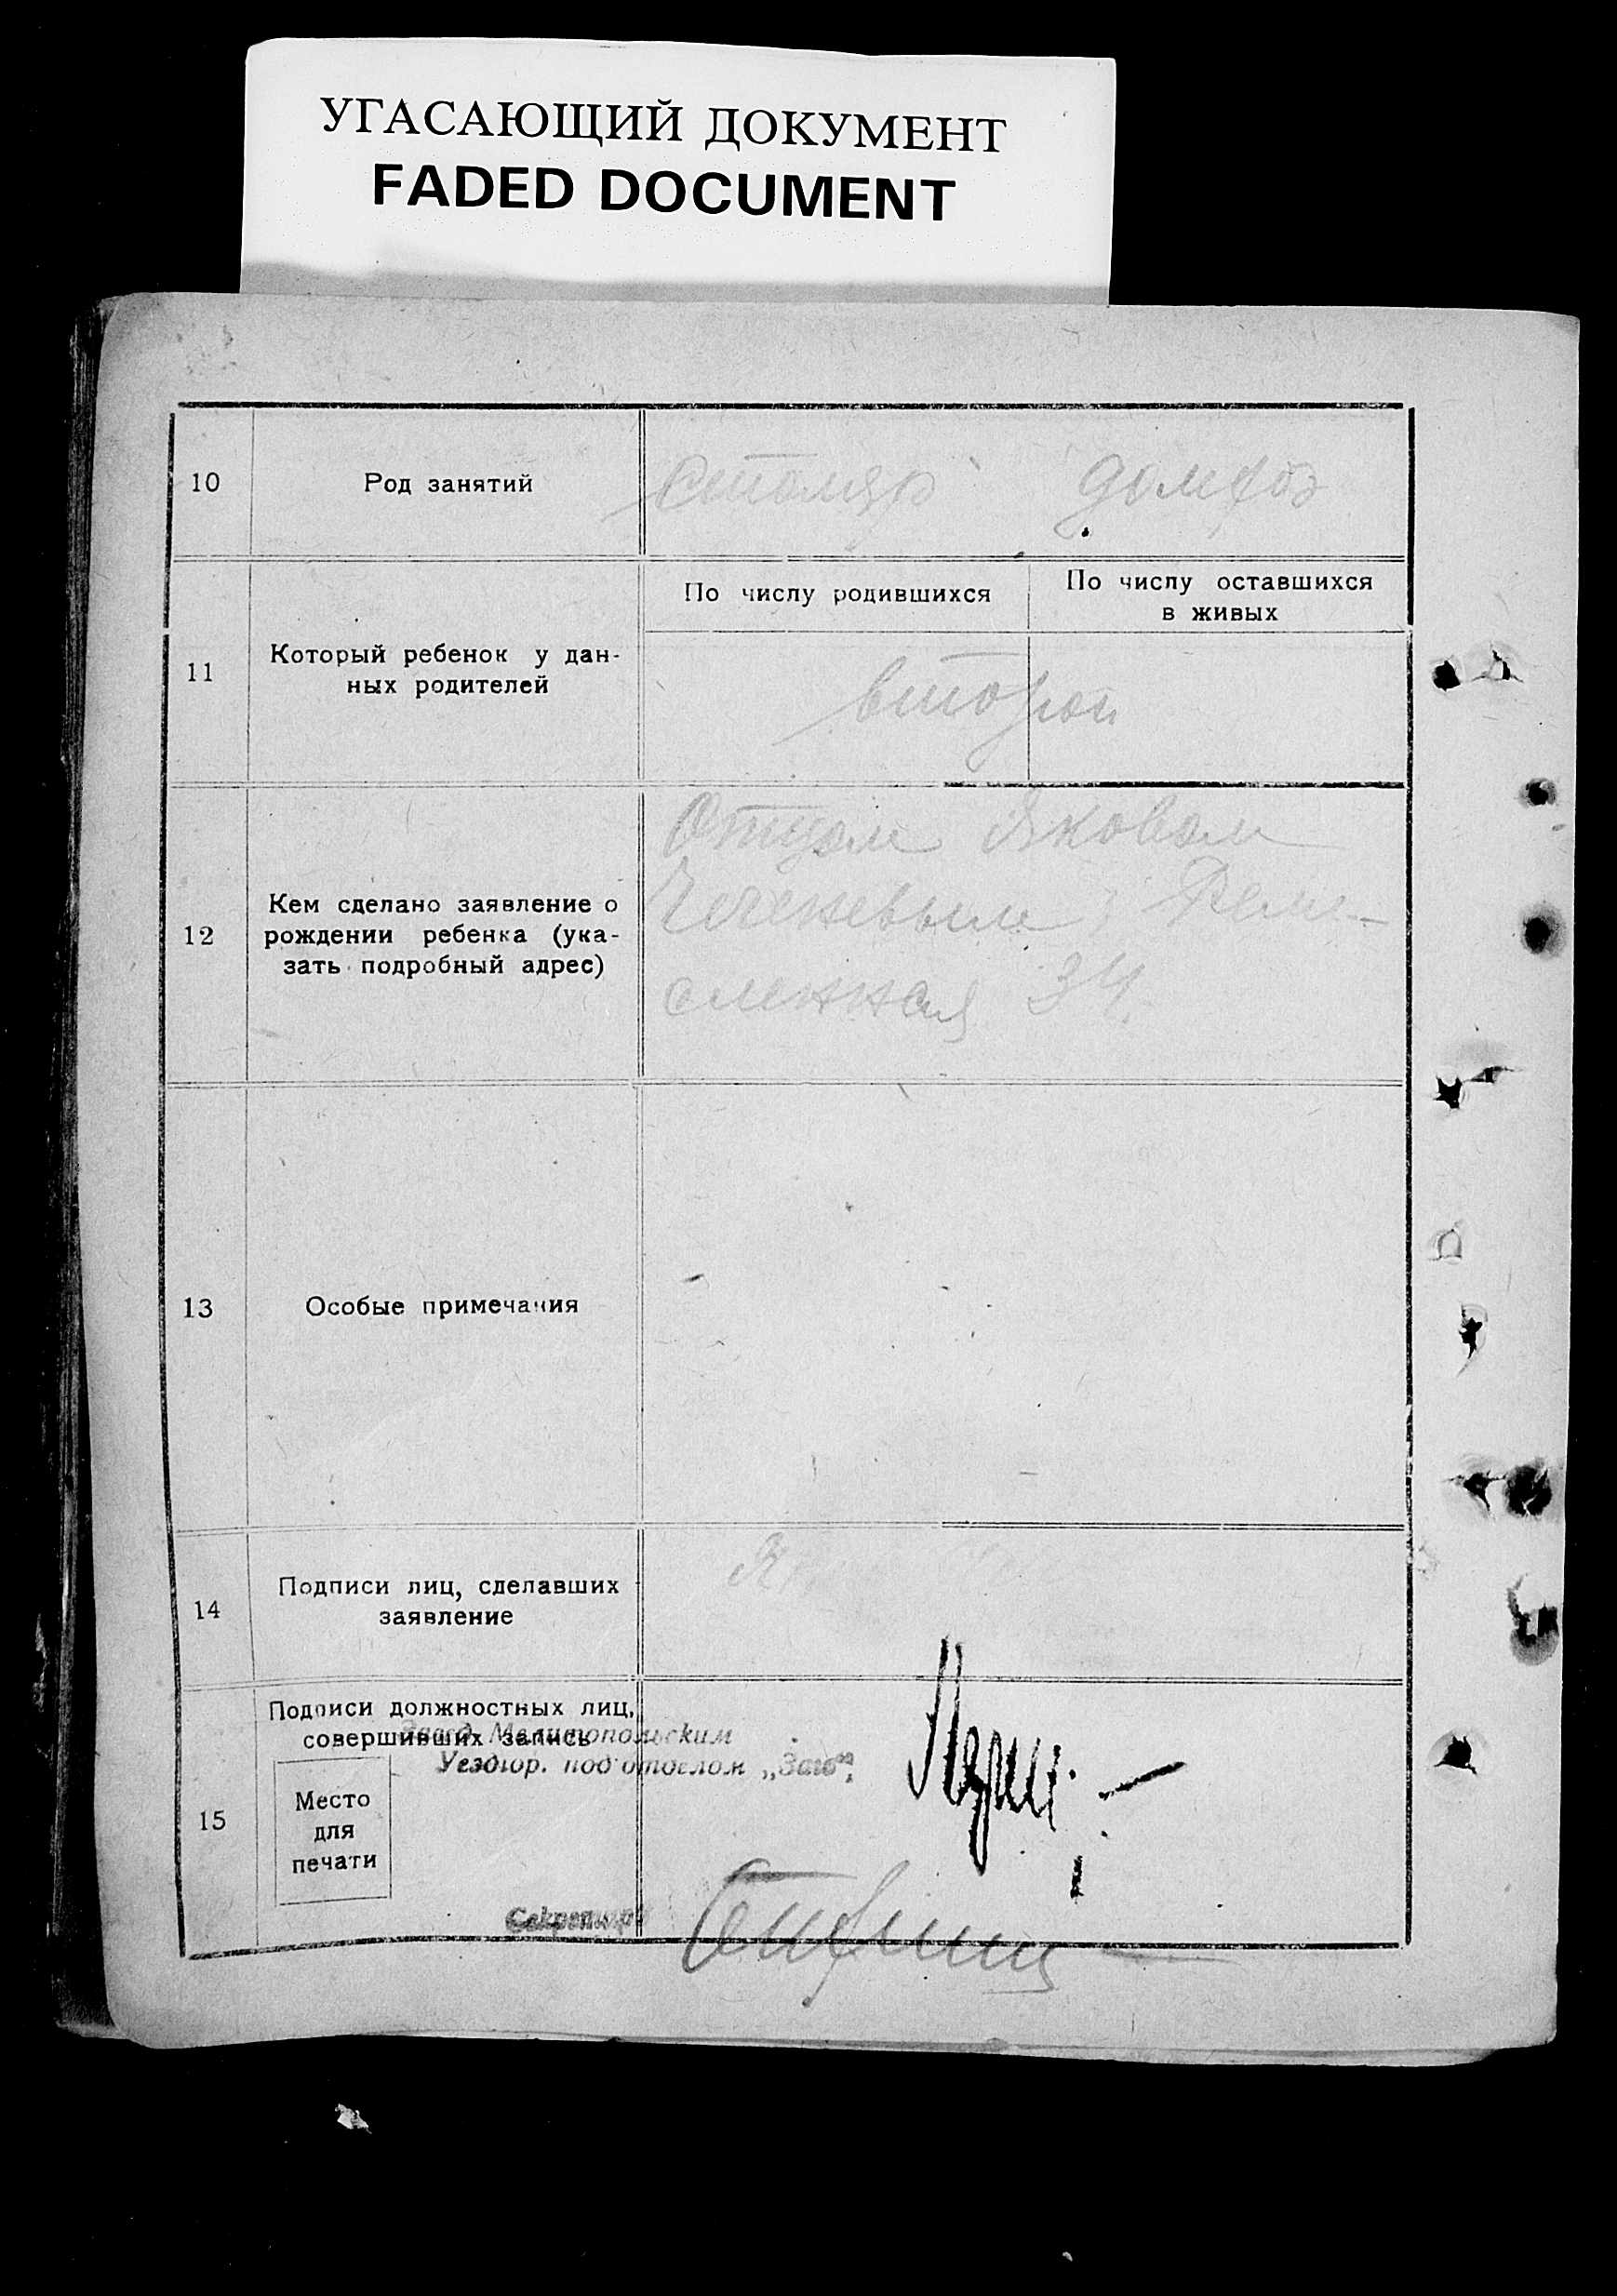 УГАСАЮЩИЙ ДОКУМЕНТ
FADED DOCUMENT
10
Род занятий
Столяр домхоз
11
Который ребенок у дан-
ных родителей
По числу родившихся
По числу оставшихся
в живых
второй
12
Кем сделано заявление о
рождении ребенка (ука-
зать подробный адрес)
Отцом Яковом
Реме-
сленная 34
13
Особые примечания
14
Подписи лиц, сделавших
заявление
15
Подписи должностных лиц,
совершивших запись
Завед. Мелитопольским
Уездгор. подотделом „Загс"
Место
для
печати
Секретарь